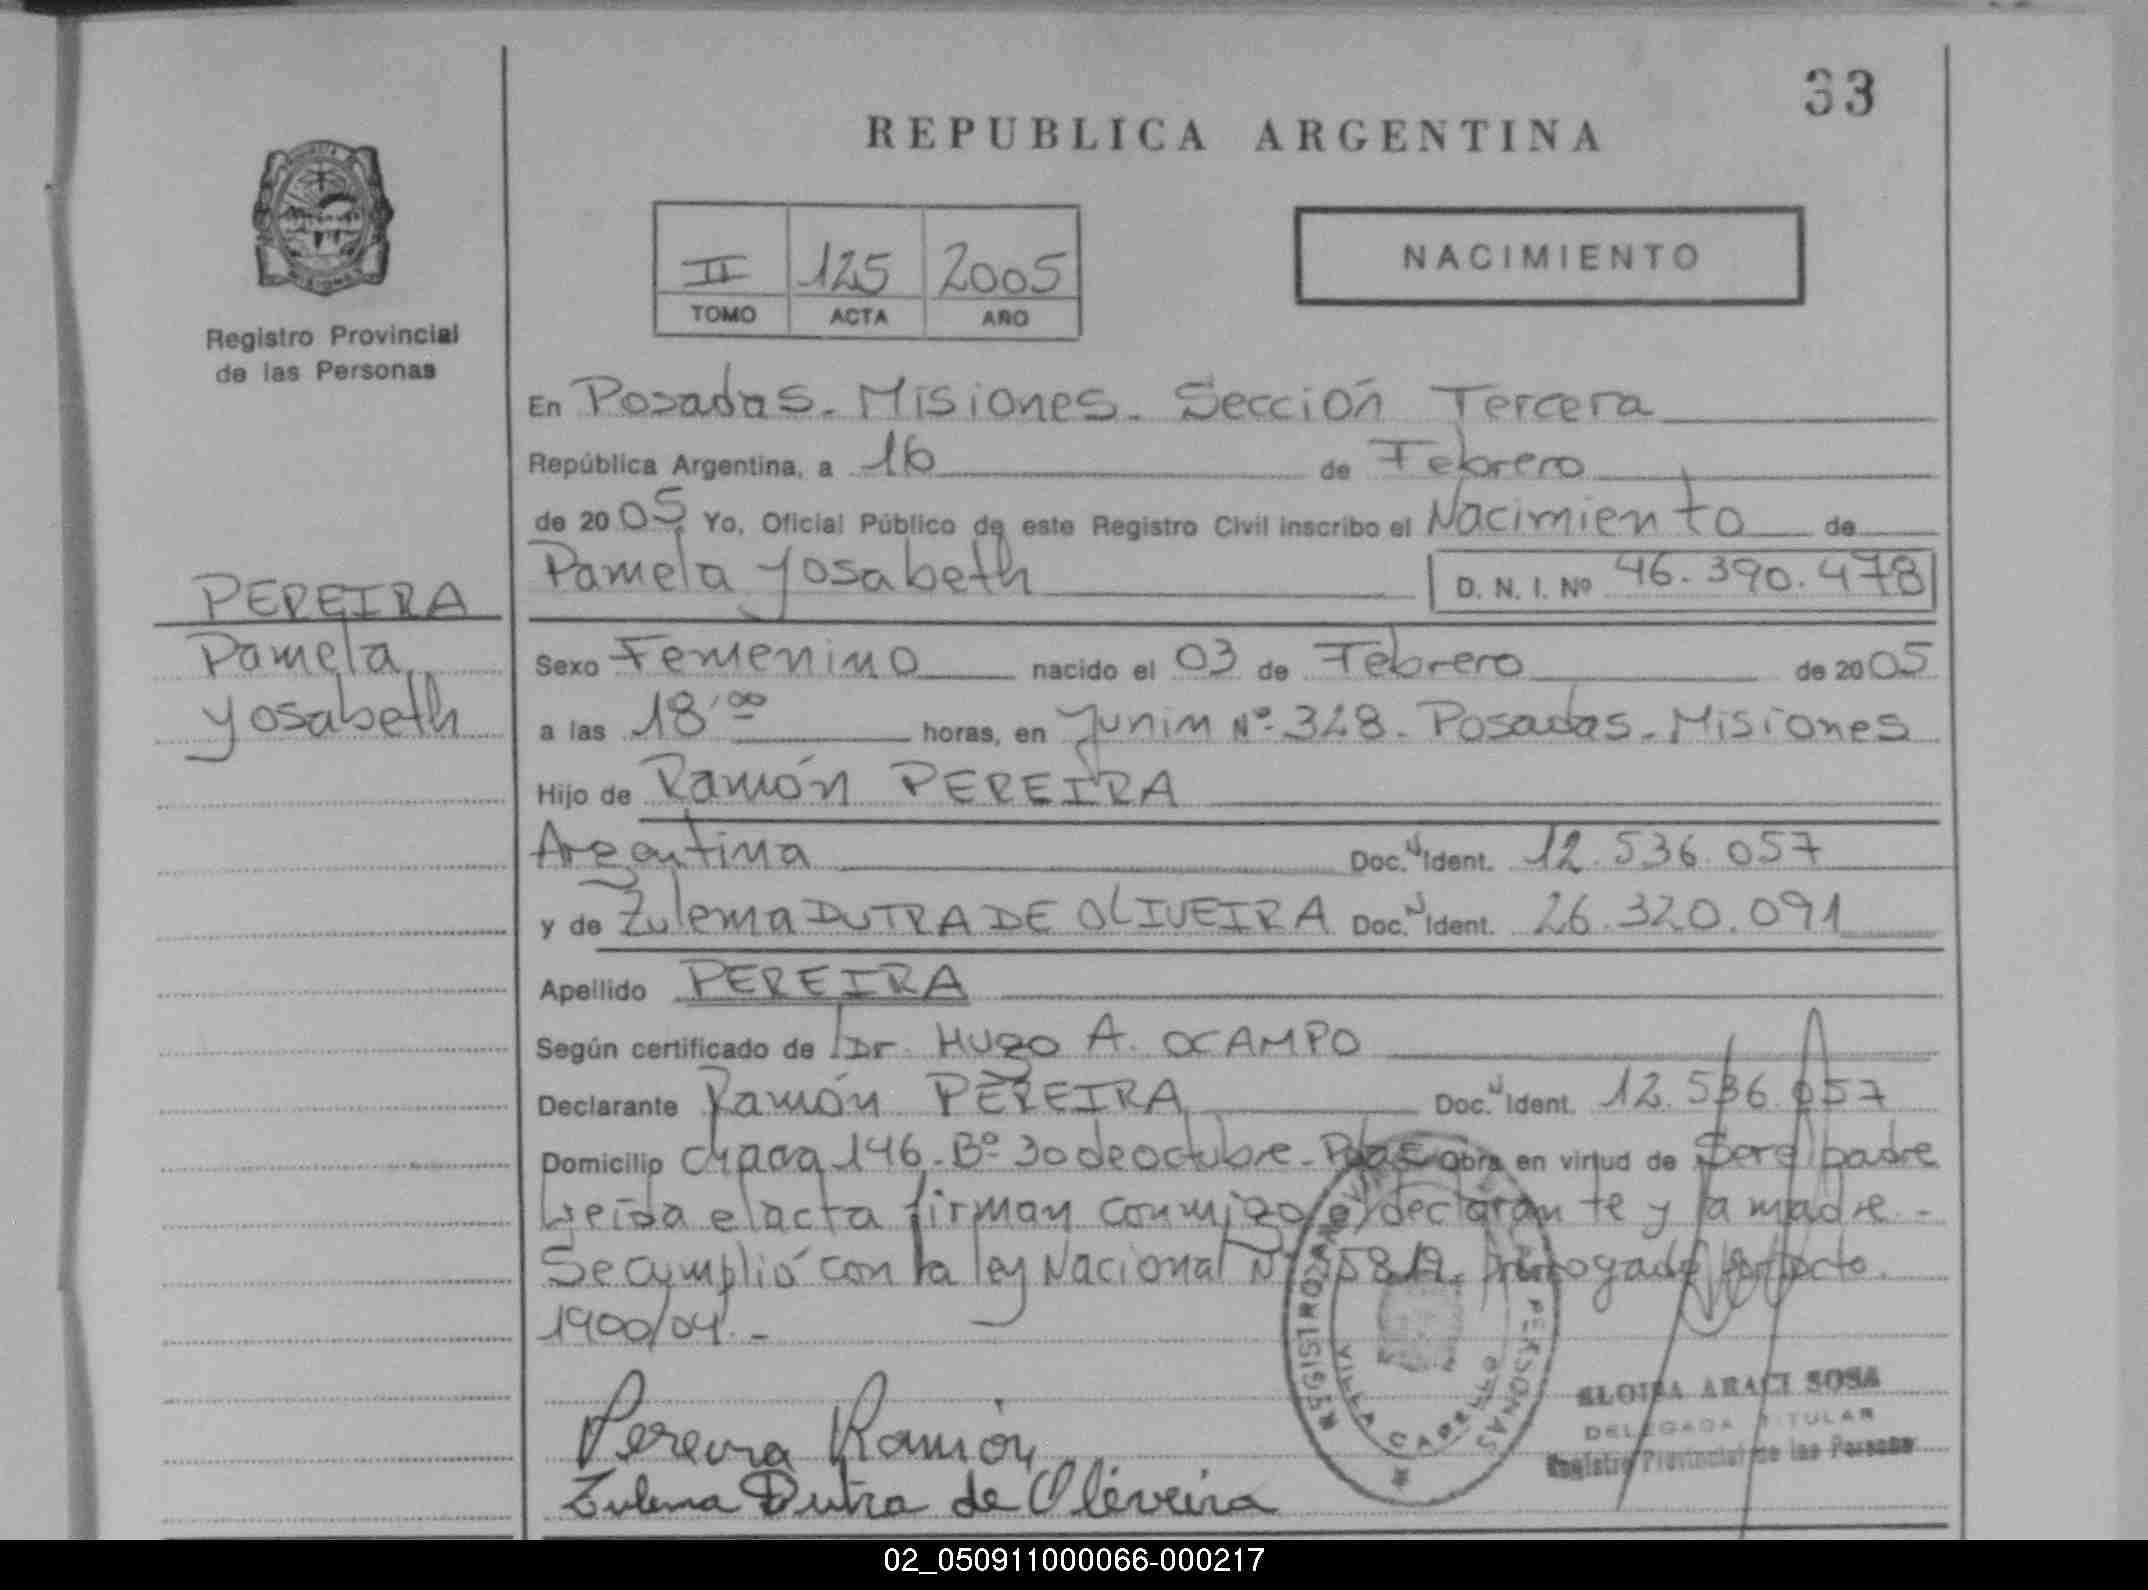 33
REPUBLICA ARGENTINA
II 125 2005
TOMO ACTA AÑO
NACIMIENTO
Registro Provincial
de las Personas
PEREIRA
Pamela
Yosabeth
En Posadas. Misiones. Sección Tercera
República Argentina, a 16 de Febrero
de 2005 Yo, Oficial Público de este Registro Civil inscribo el Nacimiento de
Pamela Yosabeth D. N. I. Nº 46.390.478
Sexo Femenino nacido el 03 de Febrero de 2005
a las 18'00 horas, en Junin Nº 328. Posadas. Misiones
Hijo de Ramón PEREIRA
Argentina Doc. Ident. 12.536.057
y de Zulema DUTRA DE OLIVEIRA Doc. Ident. 26.320.091
Apellido PEREIRA
Según certificado de Dr. Hugo A. OCAMPO
Declarante Ramón PEREIRA Doc. Ident. 12.536.057
Domicilio chacra 146. Bº 30 de octubre. Pdas obra en virtud de Ser el padre
Leída el acta firman conmigo el declarante y la madre.-
Se cumplió con la ley Nacional Nº 25819. prorrogado
1900/04.-
Pereira Ramón
Zulema Dutra de Oliveira
REGISTRO PERSONAS
VILLA CABELLO
ELOISA ARACI SOSA
DELEGADA TITULAR
Registro Provincial de las Personas
02_050911000066-000217